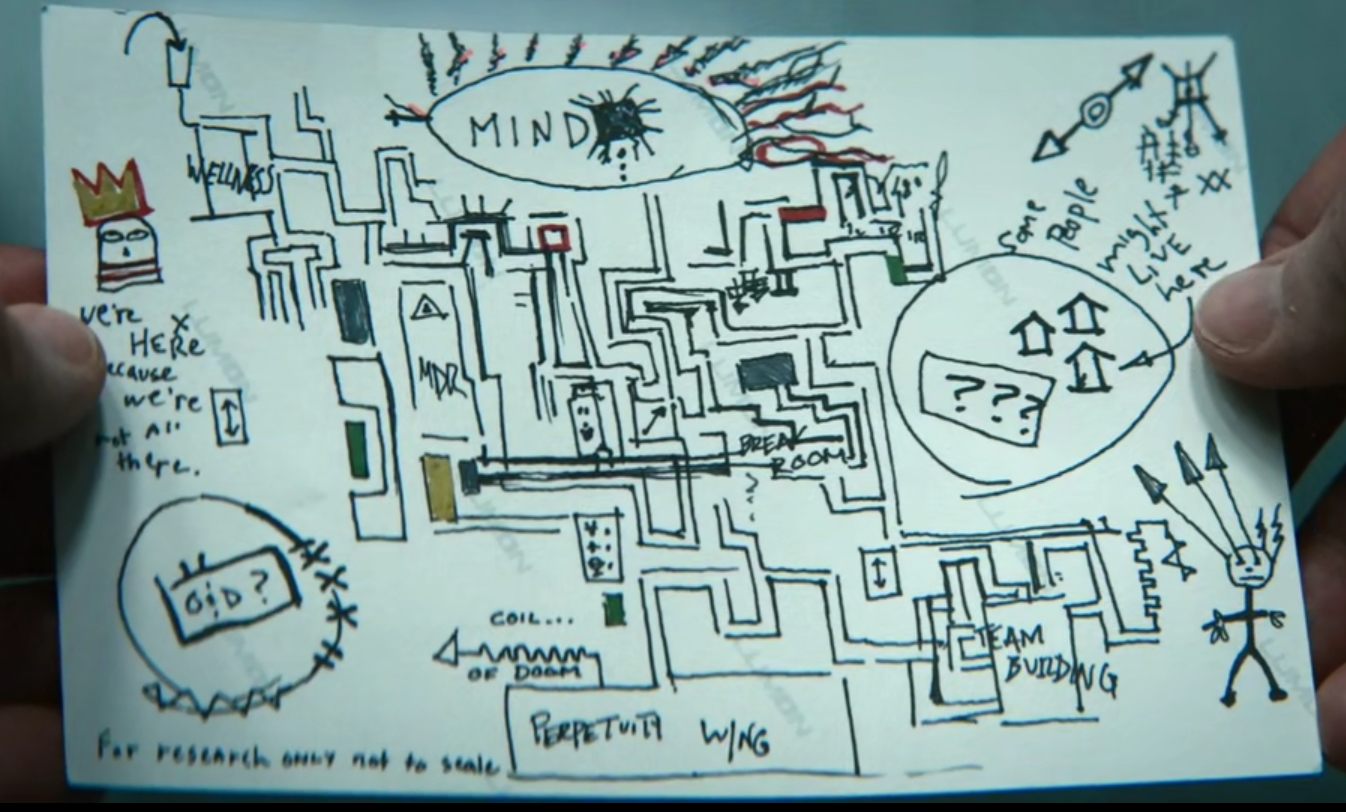 MIND
WELLNESS
some
People
might
LIVE
here
XX
we're
HERE
because
we're
not all
there.
MDR
? ? ?
BREAK
ROOM
O&D?
COIL...
OF DOOM
TEAM
BUILDING
PERPETUITY WING
For research only not to scale
LUMON